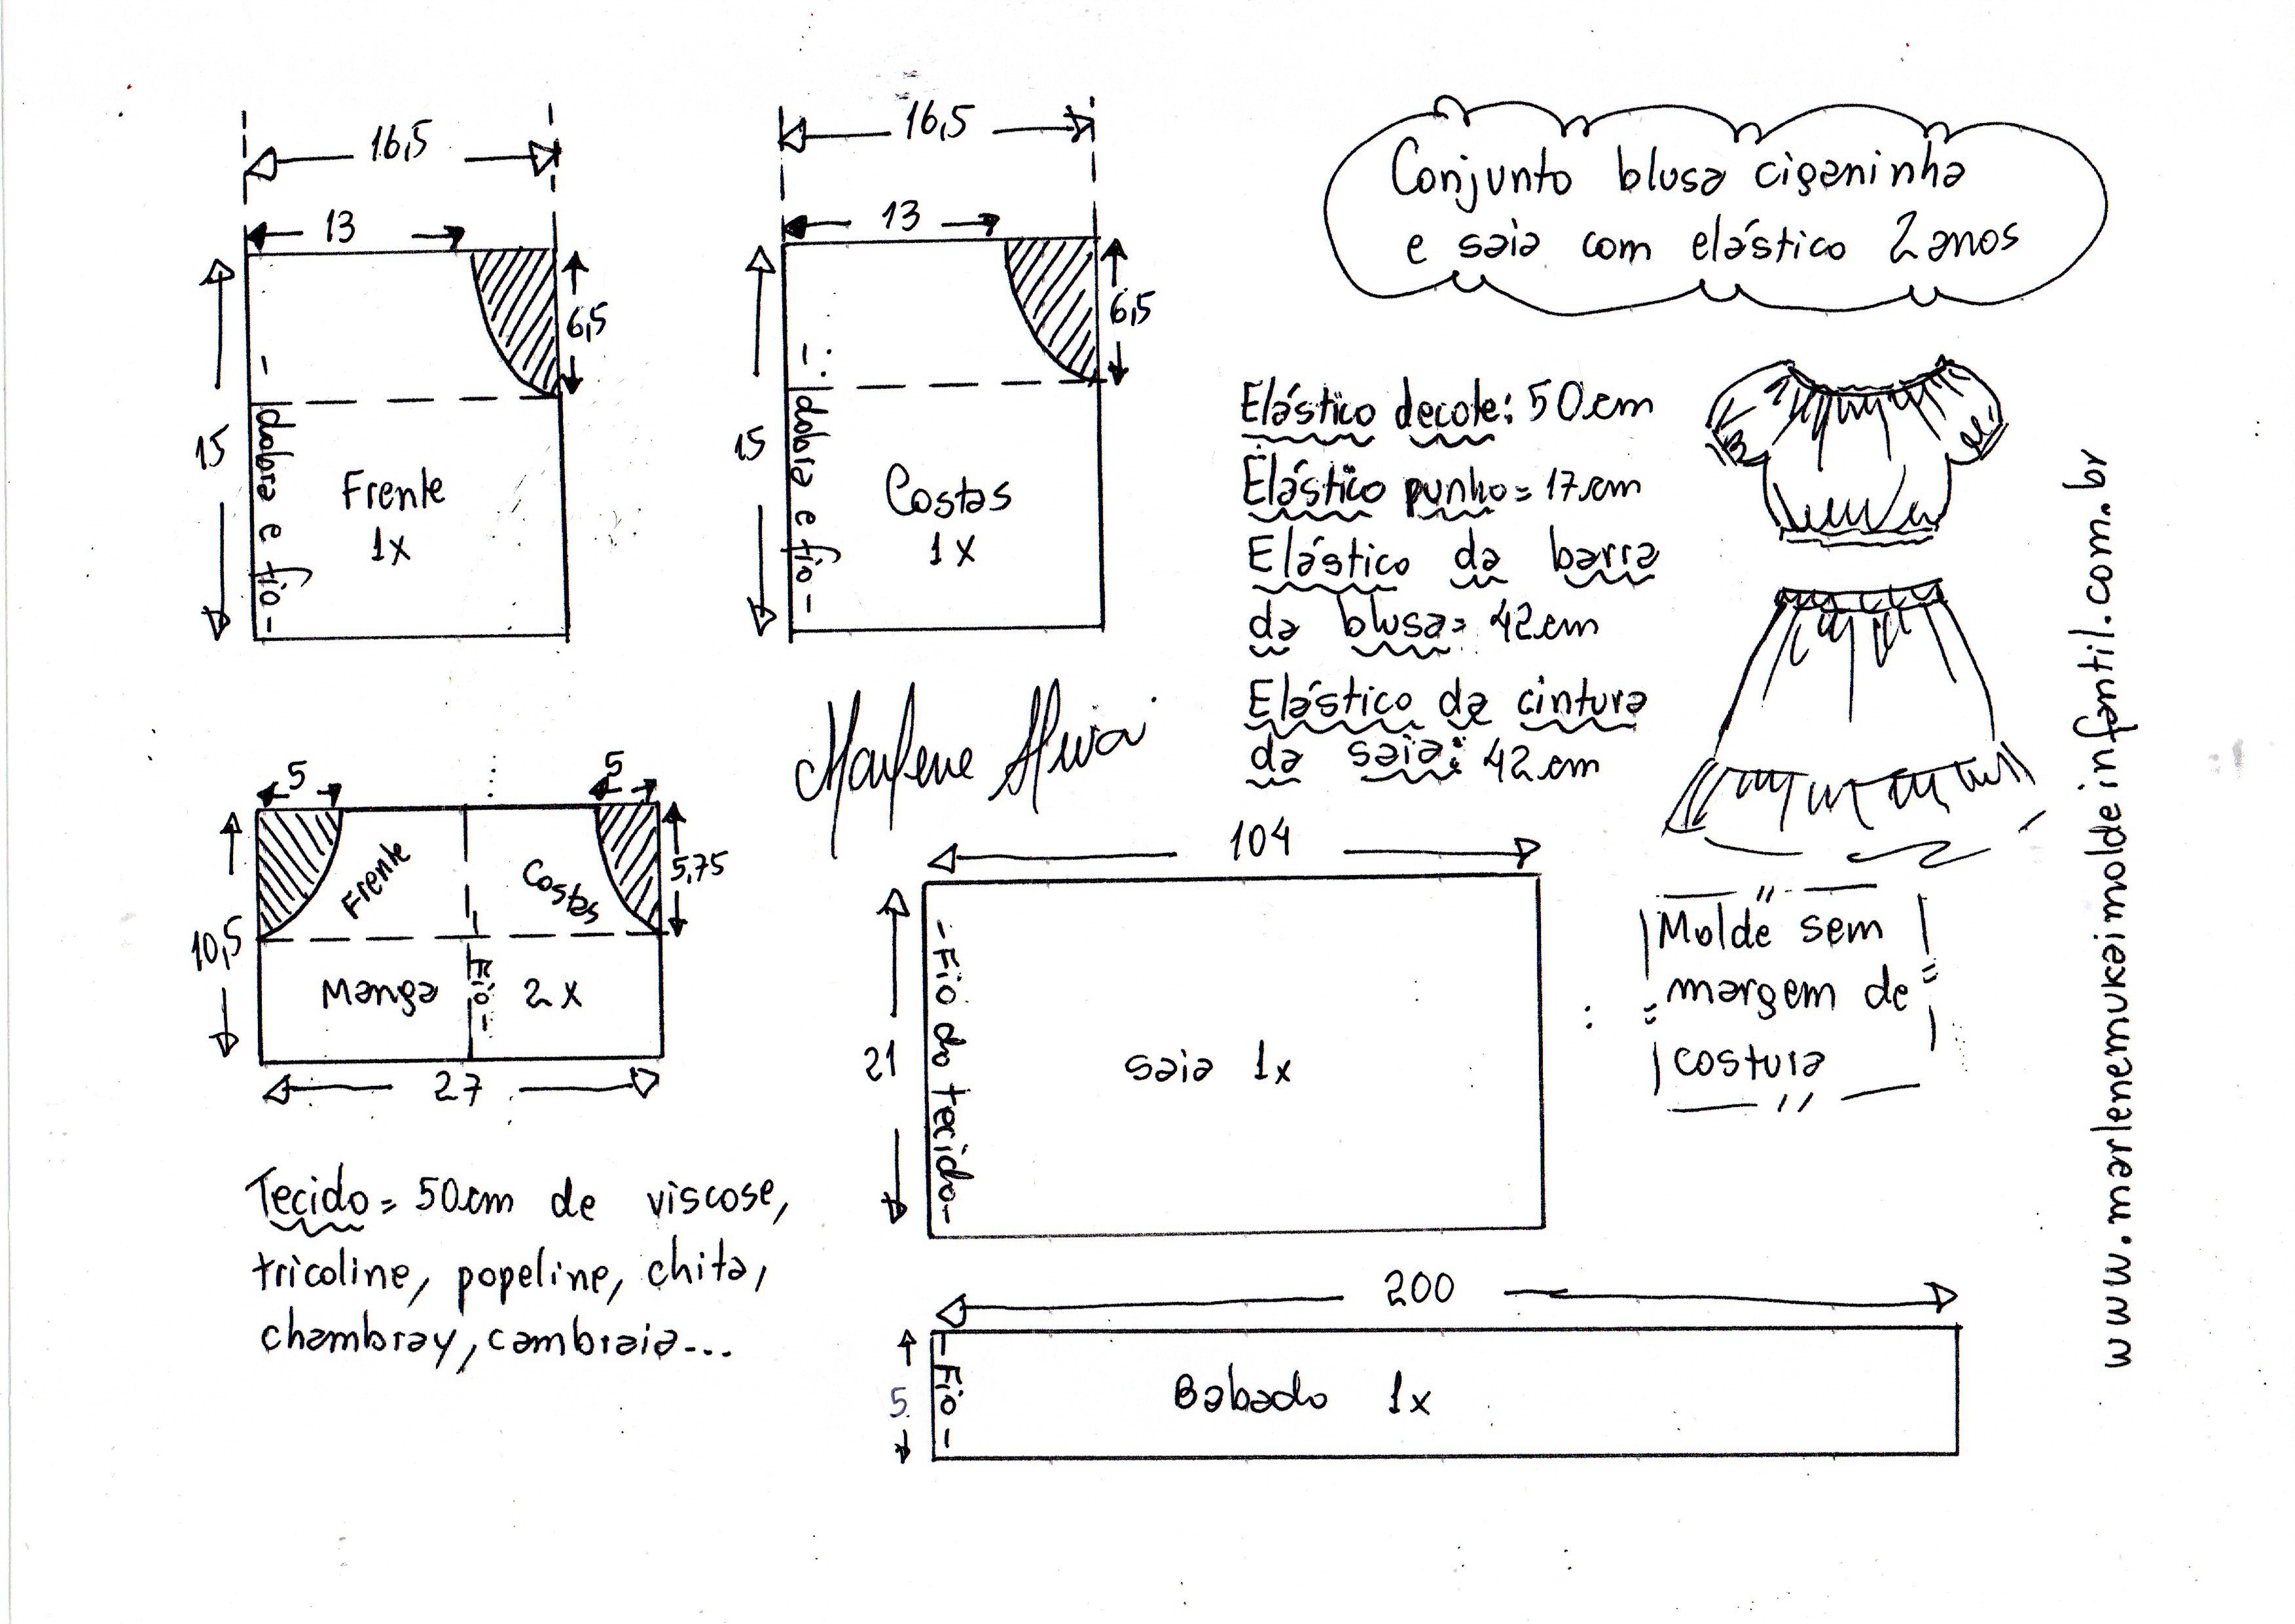 Conjunto blusa ciganinha
e saia com elástico 2 anos
16,5
13
6,5
15
dobra e fio
Frente
1x
16,5
13
6,5
15
dobra e fio
Costas
1x
Elástico decote: 50cm
Elástico punho = 17cm
Elástico da barra
da blusa = 42cm
Elástico da cintura
da saia: 42cm
5
5
5,75
10,5
Frente
Costas
Manga
Fio
2x
27
104
21
-Fio do tecido-
saia 1x
Molde sem
margem de
costura
Tecido = 50cm de viscose,
tricoline, popeline, chita,
chambray, cambraia...
200
5
-Fio-
Babado 1x
www.marlenemukaimoldeinfantil.com.br